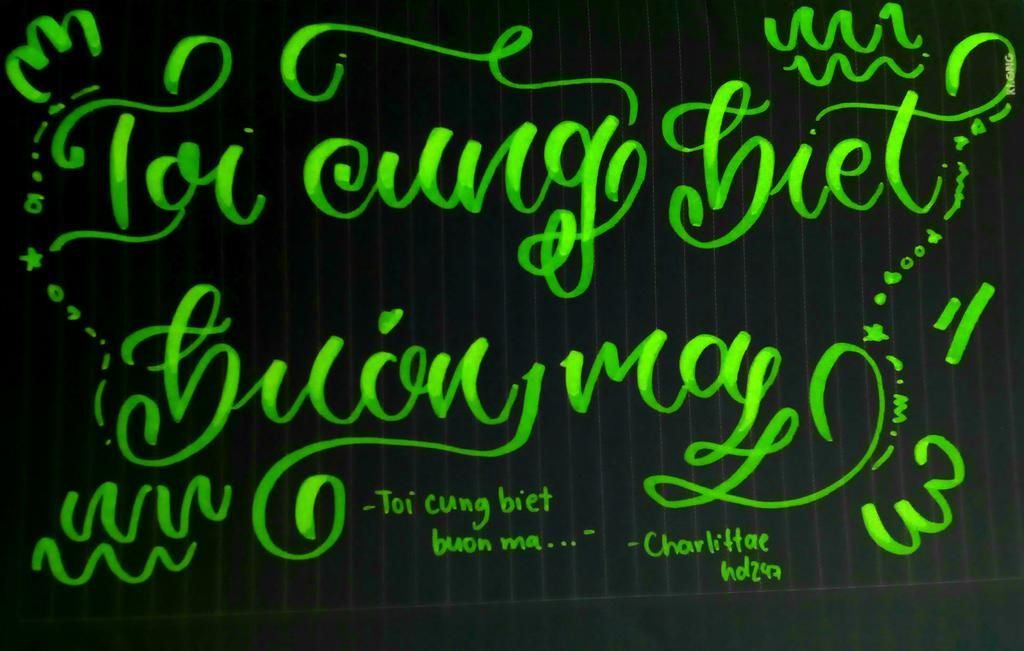 Toi cung biet
buón ma
-Toi cung biet
buon ma...-
-Charlittae
hd247